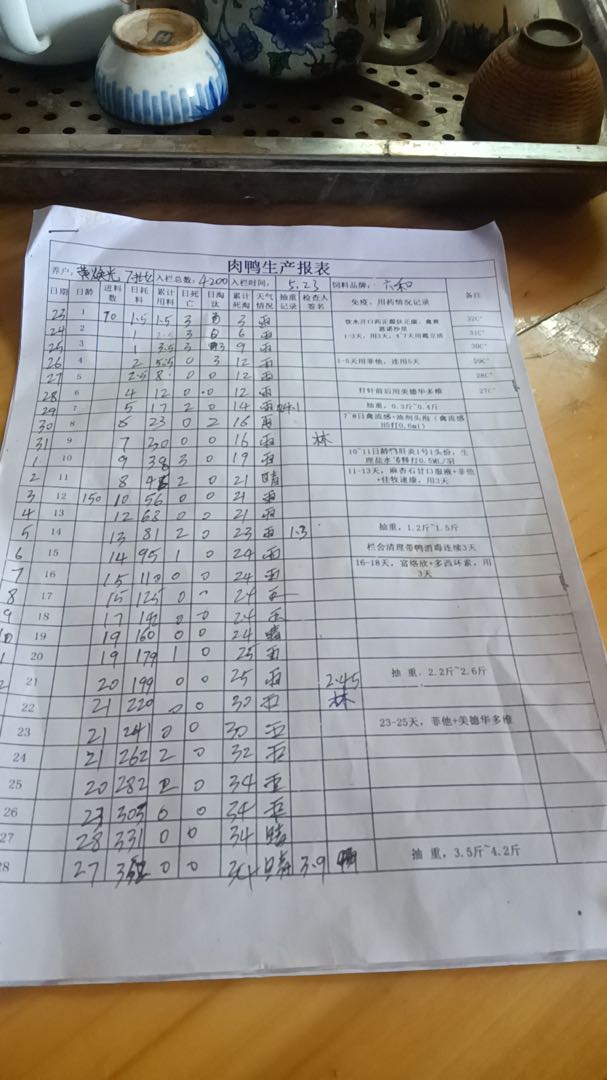 肉鸭生产报表
养户: 入栏总数: 4200 入栏时间: 5.23 饲料品牌: 六和
日期 日龄 进料数 日耗料 累计用料 日死亡 日淘汰 累计死淘 天气情况 抽重记录 检查人签名 免疫、用药情况记录 备注
23 1 70 1.5 1.5 3 3 雨 32C°
24 2 3 0 6 雨 1-3天,用3天, 31C°
25 3 1 3.5 3 9 雨 30C°
26 4 2 5.5 0 3 12 雨 1-5天用菲他,连用5天 29C°
27 5 2.5 8 0 0 12 雨 28C°
28 6 4 12 0 0 12 雨 打针前后用美德华多维 27C°
29 7 5 17 2 0 14 雨 抽重,0.3斤~0.4斤
30 8 6 23 0 2 16 雨 7-8日禽流感+油剂头孢(禽流感H5打0.6ml)
31 9 7 30 0 0 16 雨 林
1 10 9 3 0 19 雨 10~11日龄鸭肝炎1号1头份,生理盐水
2 11 8 2 0 21 晴 11-13天,麻杏石甘口服液+菲他+佳牧速康,用3天
3 12 150 10 56 0 0 21 雨
4 13 12 68 0 0 21 雨
5 14 13 81 2 0 23 雨 1.3 抽重,1.2斤~1.5斤
6 15 14 95 1 0 24 雨 栏舍清理带鸭消毒连续3天
7 16 15 110 0 0 24 雨 16-18天,富络欣+多西环素,用3天
8 17 15 125 0 0 24
9 18 17 0 0 24
10 19 19 160 0 0 24 晴
1 20 19 179 1 0 25 雨
2 21 20 199 0 0 25 雨 2.45 抽重,2.2斤~2.6斤
22 21 220 0 0 30 雨 林
23 21 241 0 0 30 雨 23-25天,菲他+美德华多维
24 21 262 2 0 32 雨
25 20 282 2 0 34 雨
26 303 0 0 34 雨
27 28 331 0 0 34 晴
28 27 0 0 34 晴 3.9 抽重,3.5斤~4.2斤